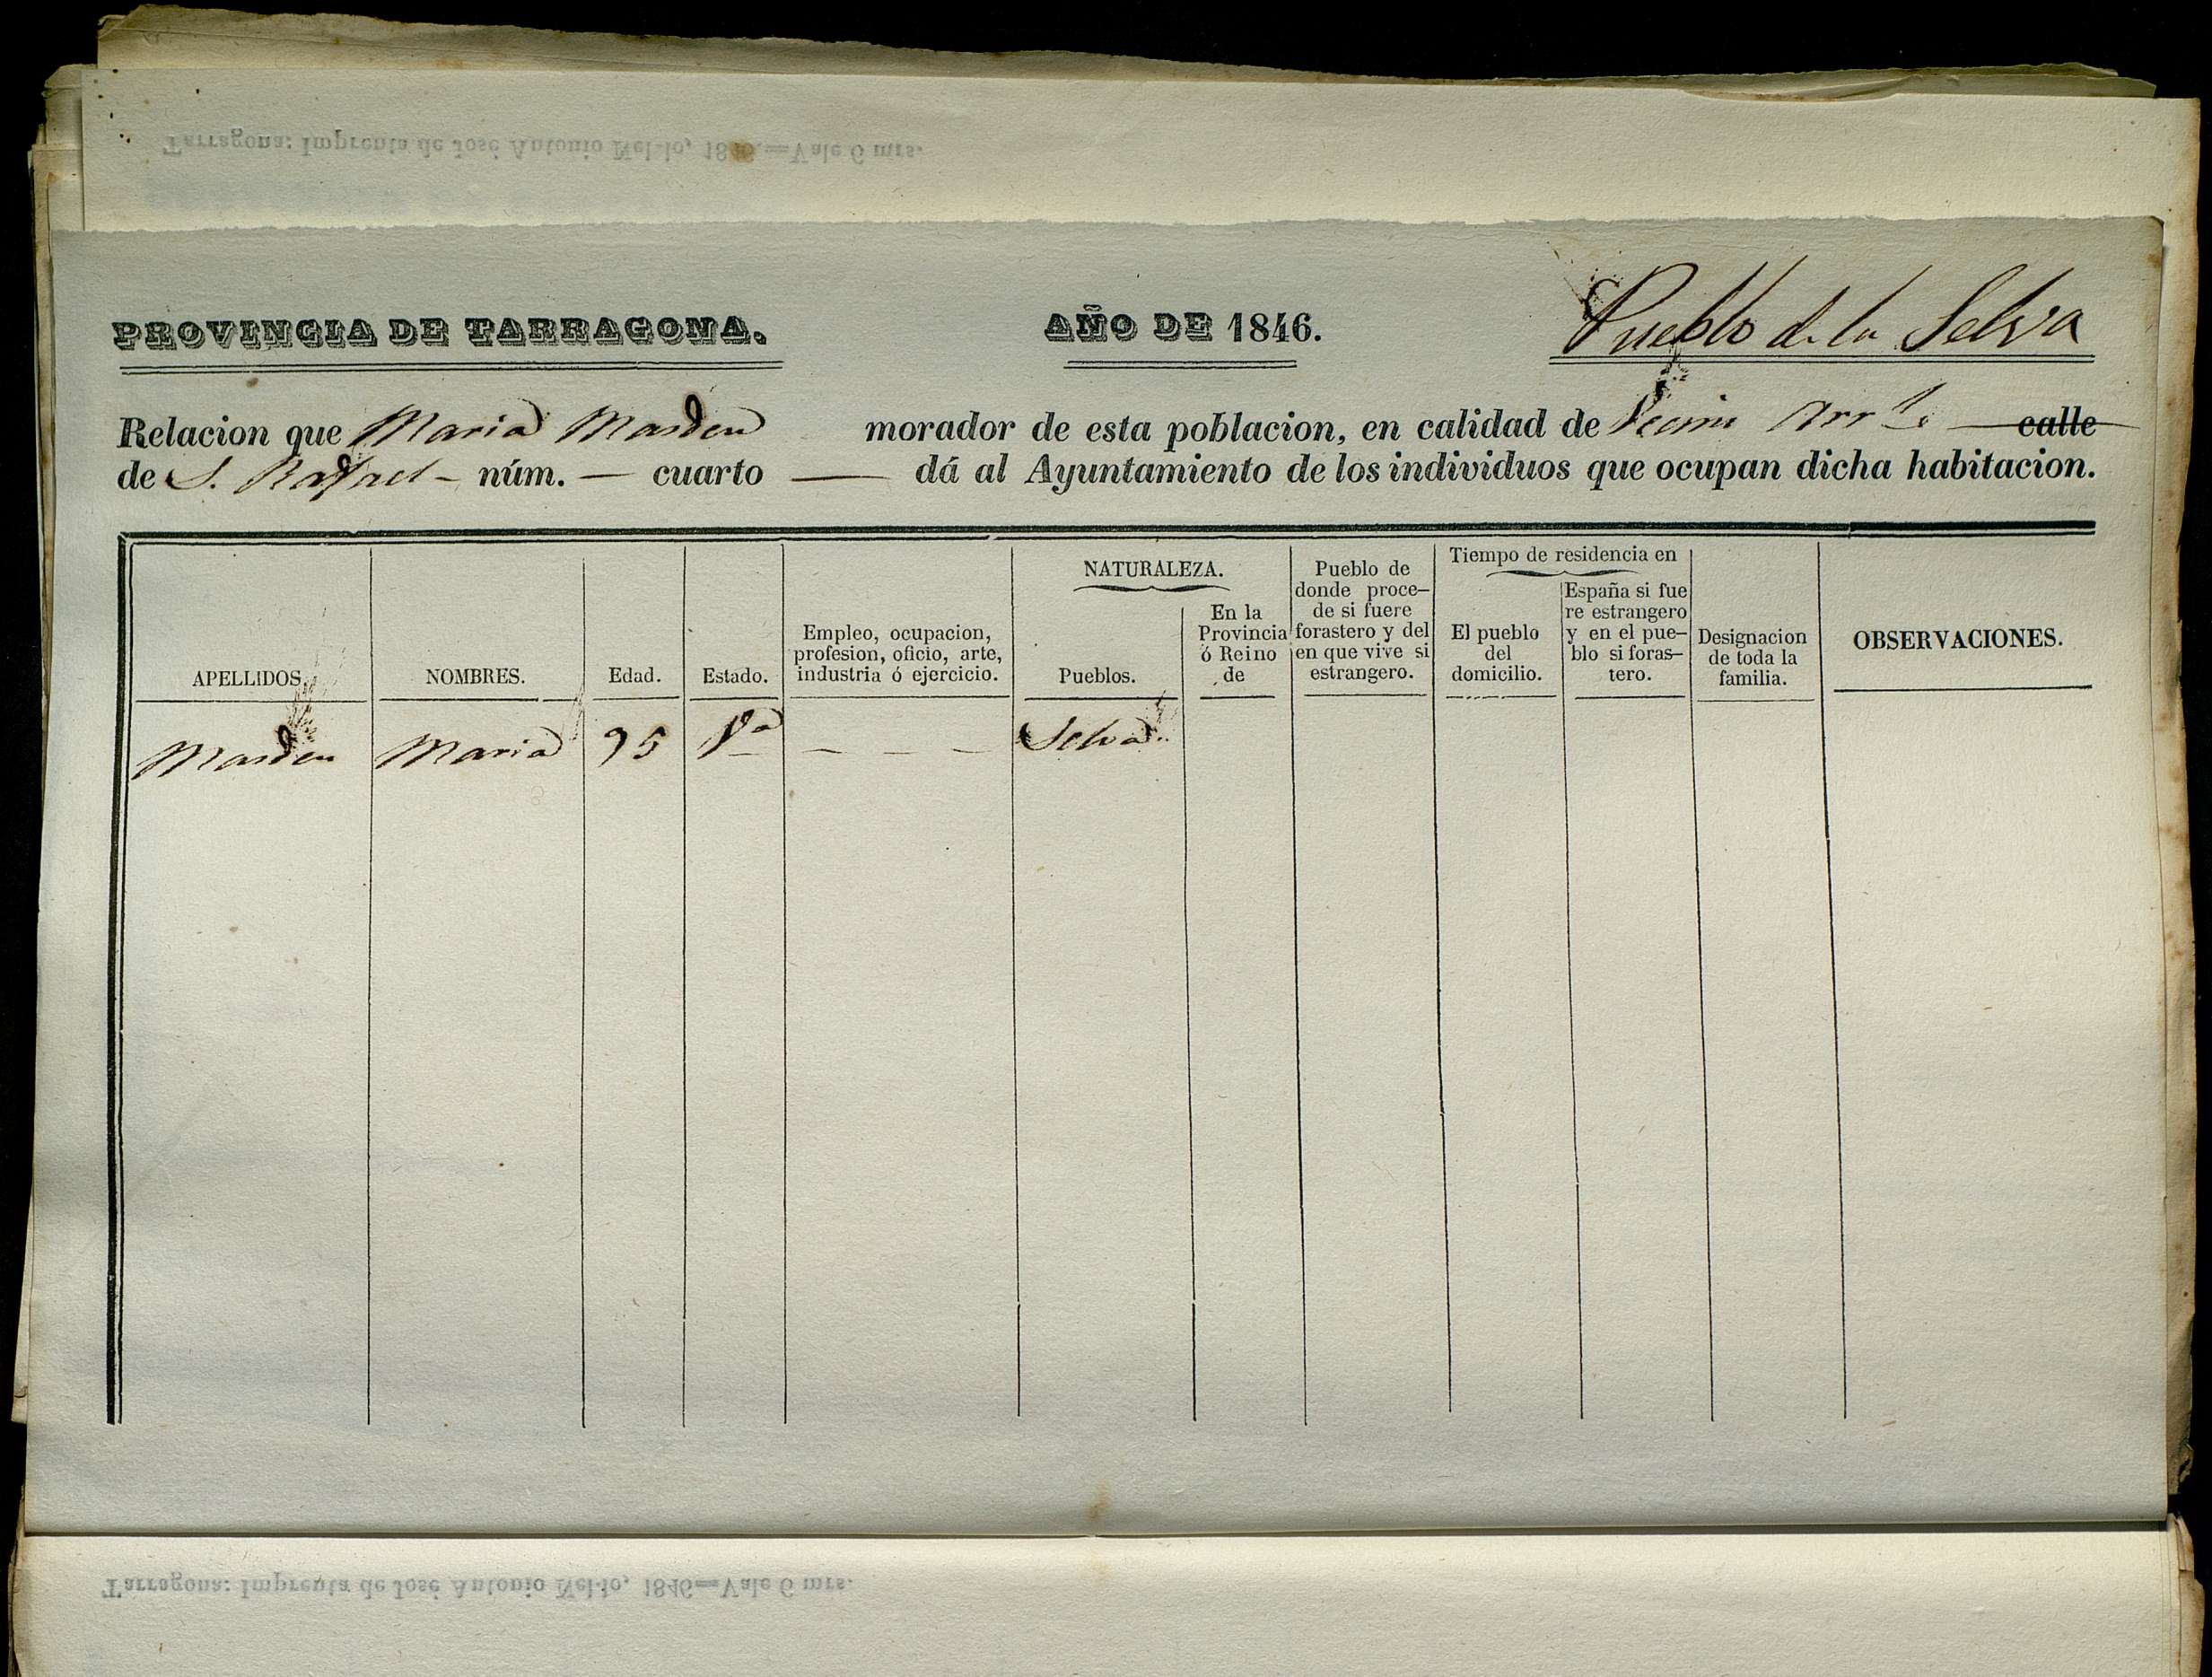 Tarragona: Imprenta de José Antonio Nel-lo, 1846.=Vale 6 mrs.
PROVINCIA DE TARRAGONA.
AÑO DE 1846.
Pueblo de la Selva
Relacion que Maria Masdeu morador de esta poblacion, en calidad de calle
de S. Rafael - núm. — cuarto — dá al Ayuntamiento de los individuos que ocupan dicha habitacion.
APELLIDOS.
NOMBRES.
Edad.
Estado.
Empleo, ocupacion,
profesion, oficio, arte,
industria ó ejercicio.
NATURALEZA.
Pueblos.
En la
Provincia
ó Reino
de
Pueblo de
donde proce-
de si fuere
forastero y del
en que vive si
estrangero.
Tiempo de residencia en
El pueblo
del
domicilio.
España si fue
re estrangero
y en el pue-
blo si foras-
tero.
Designacion
de toda la
familia.
OBSERVACIONES.
Masdeu Maria Vª — — — Selva
Tarragona: Imprenta de José Antonio Nel-lo, 1846=Vale 6 mrs.